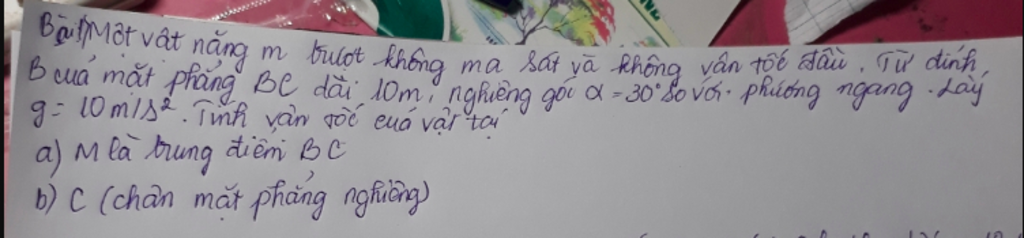 Bài 1) Một vật nặng m trượt không ma sát và không vận tốc đầu. Từ đỉnh
B cuả mặt phẳng BC dài 10m, nghiêng góc α = 30° so với phương ngang. Lấy
g = 10m/s². Tính vận tốc cuả vật tại
a) M là trung điểm BC
b) C (chân mặt phẳng nghiêng)